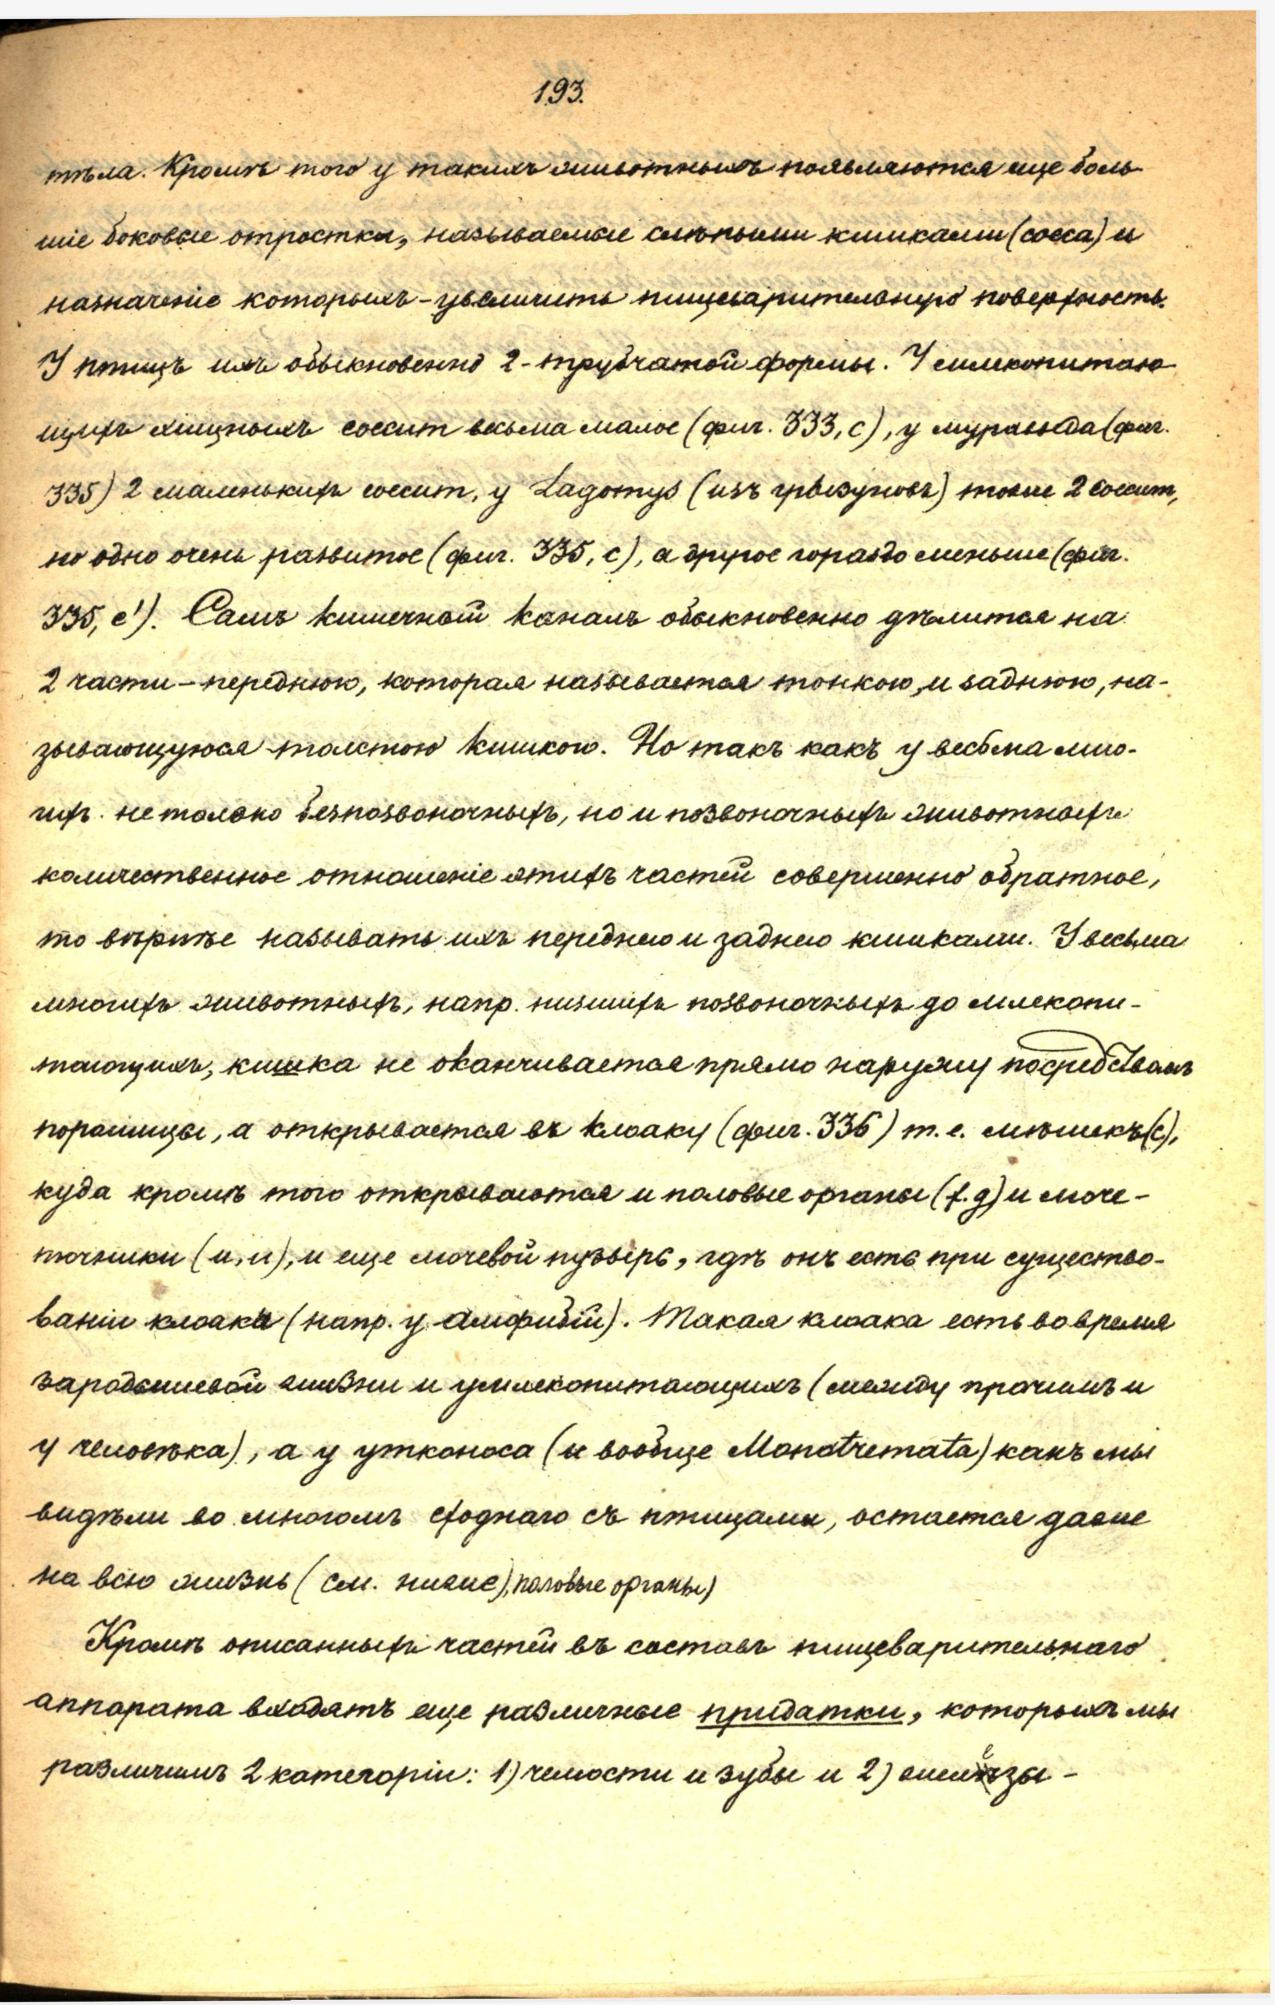 193.
тѣла. Кромѣ того у такихъ животныхъ появляются еще боль-
шіе боковые отростки, называемые слѣпыми кишками (coeca) и
назначеніе которыхъ - увеличить пищеварительную поверхность.
У птицъ ихъ обыкновенно 2 - трубчатой формы. У млекопитаю-
щихъ хищныхъ coecum весьма малое (фиг. 333, c), у муравьѣда (фиг.
335) 2 маленькихъ coecum, у Lagomys (изъ грызуновъ) тоже 2 coecum,
но одно очень развитое (фиг. 335, c), а другое гораздо меньше (фиг.
335, c'). Самъ кишечный каналъ обыкновенно дѣлится на
2 части - переднюю, которая называется тонкою, и заднюю, на-
зывающуюся толстою кишкою. Но такъ какъ у весьма мно-
гихъ не только безпозвоночныхъ, но и позвоночныхъ животныхъ
количественное отношеніе этихъ частей совершенно обратное,
то вѣрнѣе называть ихъ переднею и заднею кишками. У весьма
многихъ животныхъ, напр. низшихъ позвоночныхъ до млекопи-
тающихъ, кишка не оканчивается прямо наружу посредствомъ
порошицы, а открывается въ клоаку (фиг. 336) т. е. мѣшекъ (c),
куда кромѣ того открываются и половые органы (f. g) и моче-
точники (u, u), и еще мочевой пузырь, гдѣ онъ есть при существо-
ваніи клоаки (напр. у амфибій). Такая клоака есть во время
зародышевой жизни и у млекопитающихъ (между прочимъ и
у человѣка), а у утконоса (и вообще Monotremata) какъ мы
видѣли во многомъ сходнаго съ птицами, остается даже
на всю жизнь (см. ниже), половые органы)
Кромѣ описанныхъ частей въ составъ пищеварительнаго
аппарата входятъ еще различные придатки, которыхъ мы
различимъ 2 категоріи: 1) челюсти и зубы и 2) железы -